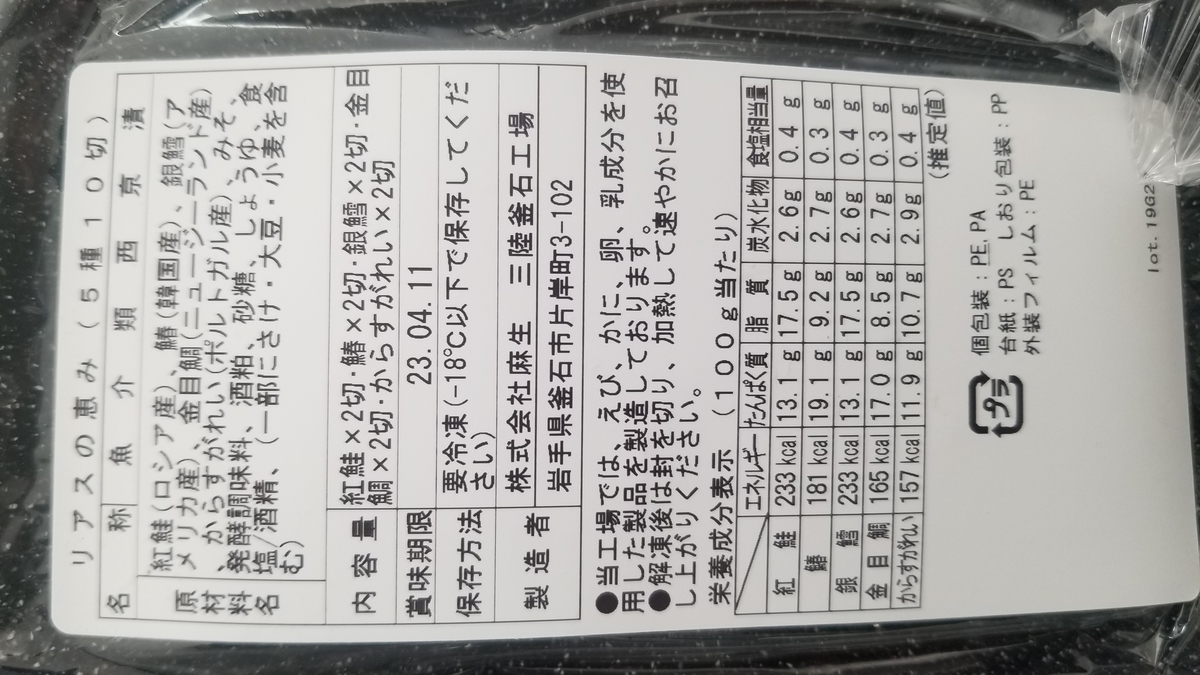 リアスの恵み(5種10切)
名称 魚介類西京漬
原材料名
紅鮭(ロシア産)、鰆(韓国産)、銀鱈(ア
メリカ産)、金目鯛(ニュージーランド産)
、からすがれい(ポルトガル産)、みそ、
発酵調味料、酒粕、砂糖、しょうゆ、食
塩/酒精、(一部にさけ・大豆・小麦を含
む)
内容量 紅鮭×2切・鰆×2切・銀鱈×2切・金目
鯛×2切・からすがれい×2切
賞味期限 23.04.11
保存方法 要冷凍(-18℃以下で保存してくだ
さい)
製造者 株式会社麻生 三陸釜石工場
岩手県釜石市片岸町3-102
●当工場では、えび、かに、卵、乳成分を使
用した製品を製造しております。
●解凍後は封を切り、加熱して速やかにお召
し上がりください。
栄養成分表示 (100g当たり)
エネルギー たんぱく質 脂質 炭水化物 食塩相当量
紅鮭 233kcal 13.1g 17.5g 2.6g 0.4g
鰆 181kcal 19.1g 9.2g 2.7g 0.3g
銀鱈 233kcal 13.1g 17.5g 2.6g 0.4g
金目鯛 165kcal 17.0g 8.5g 2.7g 0.3g
からすがれい 157kcal 11.9g 10.7g 2.9g 0.4g
(推定値)
プラ
個包装:PE,PA
台紙:PS しおり包装:PP
外装フィルム:PE
lot.19G2